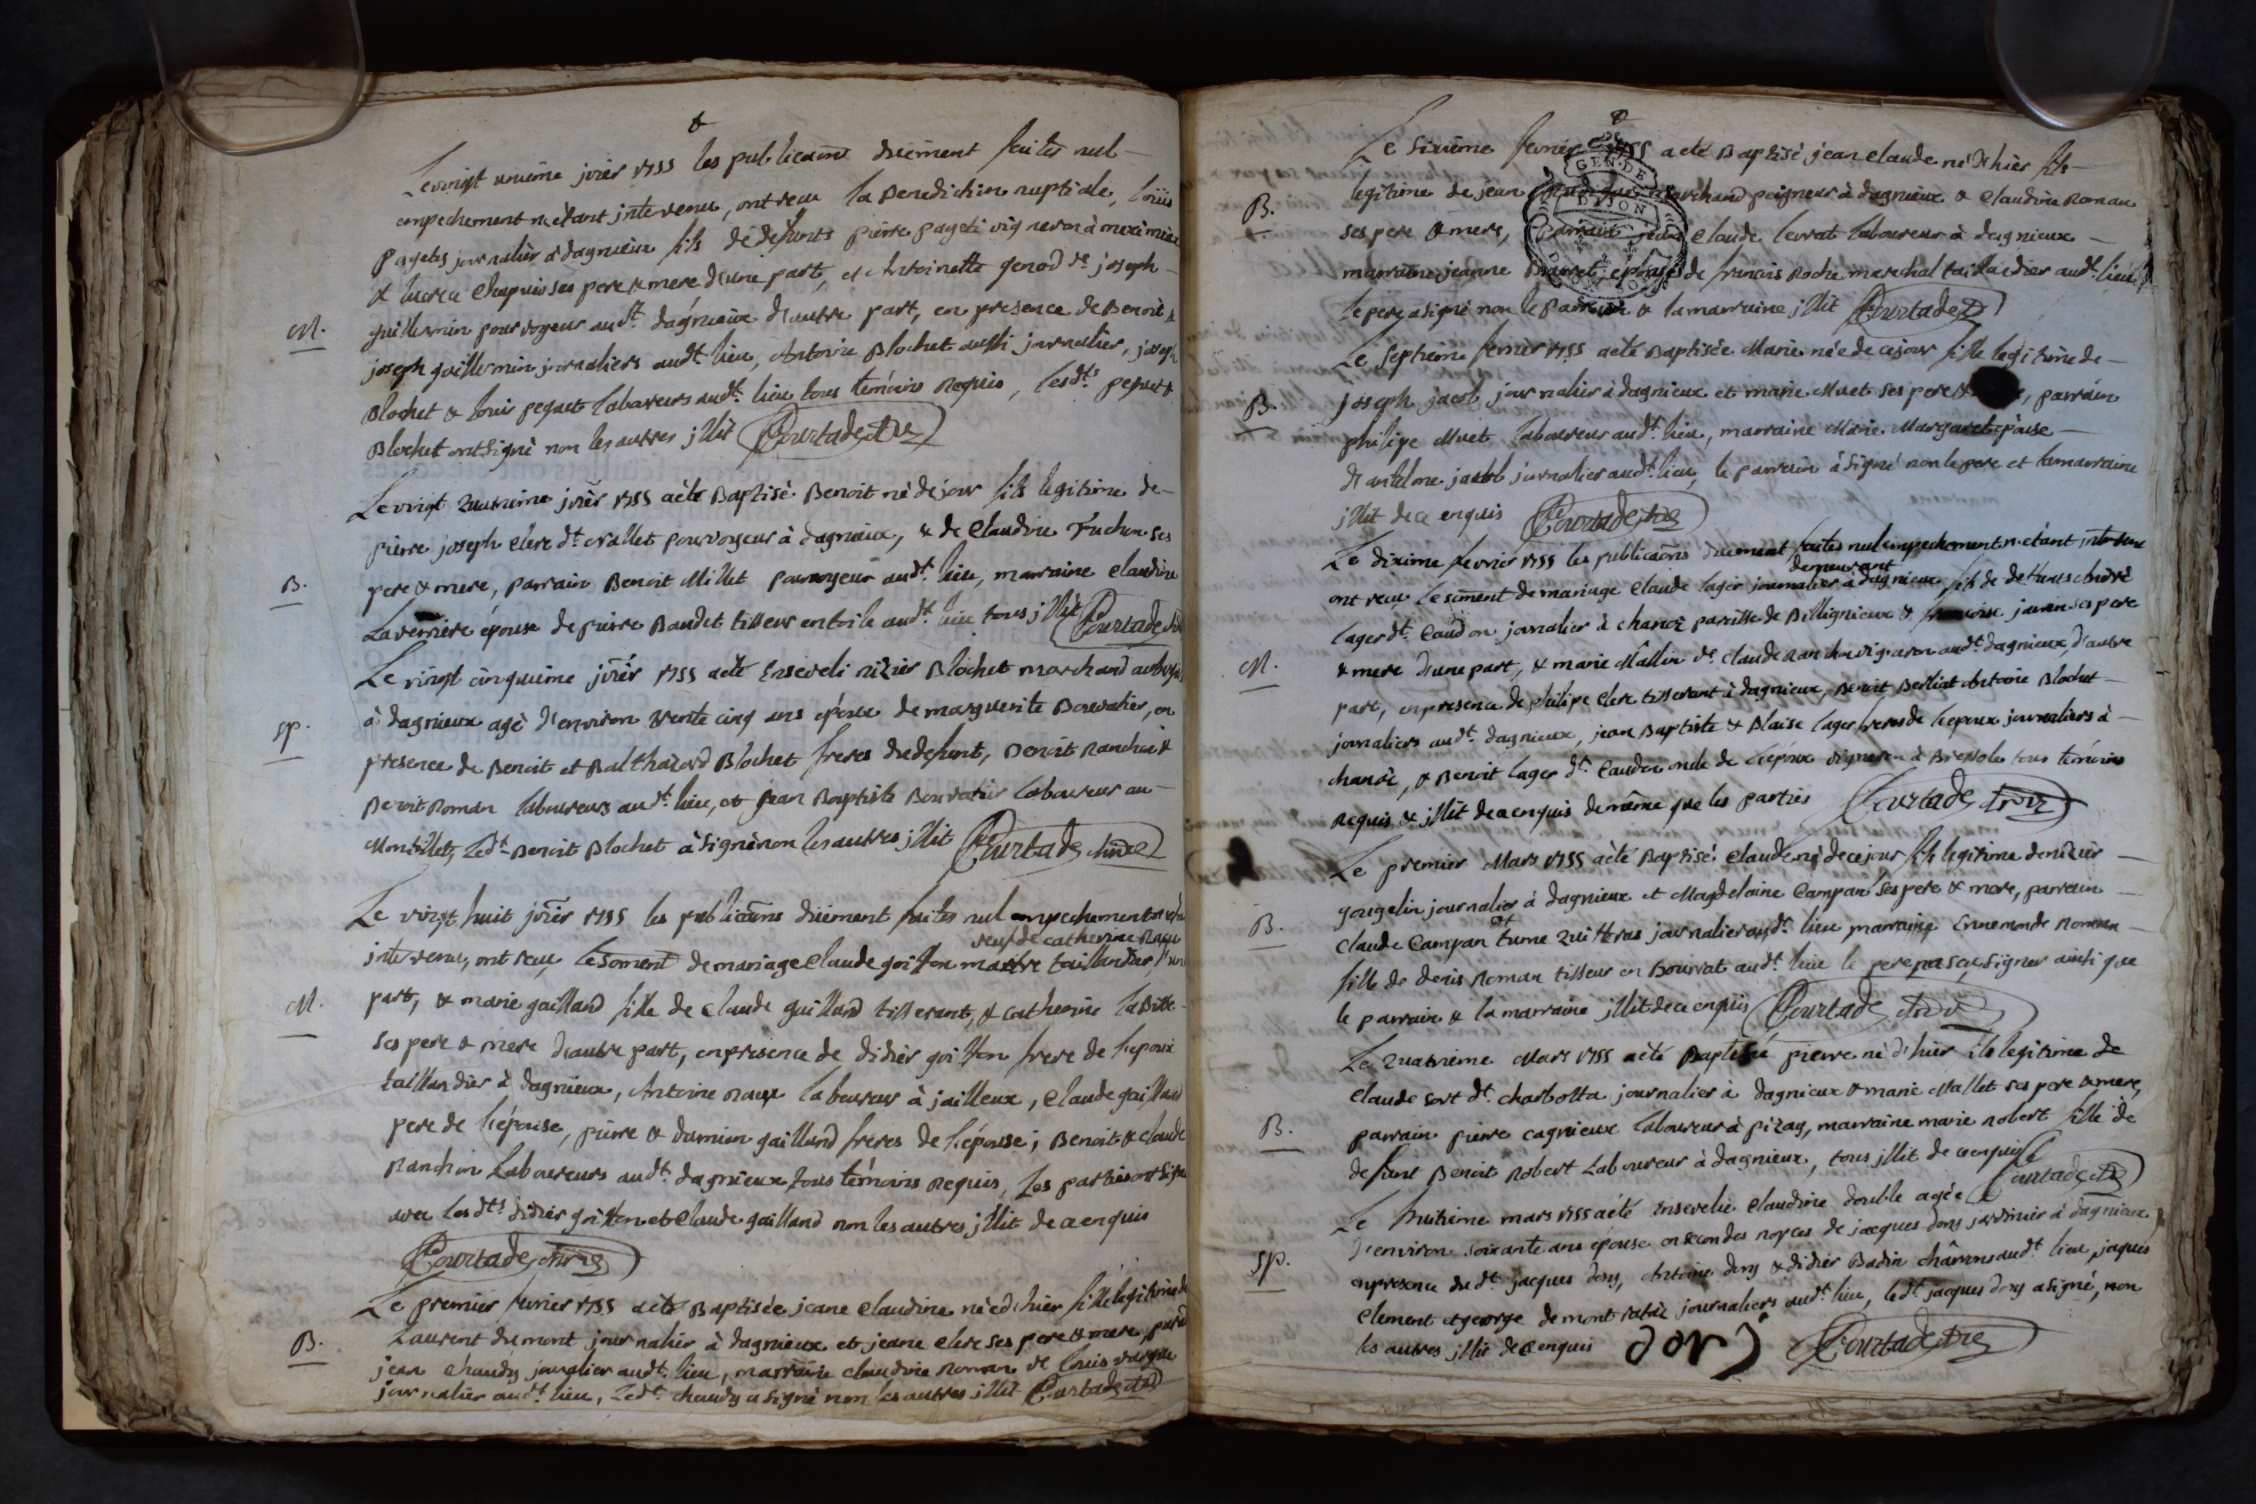 Le vingt unième jvier 1755 les publicaõns düement faites nul
empechement n'etant intervenu, ont reçu la Benediction nuptiale, loüis
pagets journalier à dagnieux fils de defunts pierre pageti vigneron à meximieu
& lucrece Chapuis ses pere & mere d'une part, et Antoinette genod ve joseph
M.
guillermin pourvoyeur audt dagnieux d'autre part, en presence de Benoit &
joseph guillermin journaliers audt lieu, Antoine Blochet aussi journalier, joseph
Blochet & louis peguet laboureurs audt lieu tous temoins requis, lesdts peguet &
Blochet ont signé non les autres illit Courtade
Le vingt quatrième jvier 1755 a été Baptisé Benoit né de jour fils legitime de
pierre joseph clerc dt vallet pourvoyeur à dagnieux, & de Claudine ses
B.
pere & mere, parrain Benoit Millet pourvoyeur audt lieu, marraine Claudine
Laverrière épouse de pierre Baudet tisseur en toile audt lieu tous illit Courtade
Le vingt cinquième jvier 1755 a été Enseveli nizier Blochet marchand
à dagnieux agé d'environ trente cinq ans époux de marguerite Bouvatier, en
sp.
presence de Benoit et Balthazard Blochet freres du defunt, Benoit Ranchin &
Benoit Roman laboureurs audt lieu, et jean Baptiste Bouvatier laboureur au
Montellet, Ledt Benoit Blochet a signé non les autres illit Courtade
Le vingt huit jvier 1755 les publicaõns düement faites nul empechement
veuf de catherine
intervenu, ont reçu le sãment de mariage Claude goiffon maitre taillandier, d'une
M.
part, & marie gailland fille de Claude gailland tisserant, & Catherine
ses pere & mere d'autre part, en presence de didier goiffon frere de l'epoux
taillandier à dagnieux, Antoine laboureur à jailleux, Claude gailland
pere de l'épouse, pierre & damien gailland freres de l'épouse; Benoit & Claude
Ranchin Laboureurs audt dagnieux tous témoins requis, Les parties ont signé
avec lesdts didier goiffon et Claude gailland non les autres illit de ce enquis
Courtade
Le premier fevrier 1755 a été Baptisée jeane Claudine née d'hier fille legitime de
B.
Laurent dumont journalier à dagnieux et jeane clerc ses pere & mere, parrain
jean Chaudy journalier audt lieu, marraine Claudine Roman ve louis
journalier audt lieu, Ledt chaudy a signé non les autres illit Courtade
Le sixième fevrier 1755 a eté Baptisé jean claude né d'hier fils
legitime de jean marchand peigneur à dagnieux & Claudine Roman
B.
ses pere & mere, parrain jean Claude levrat laboureur à dagnieux
marraine jeanne epouse de françois Roche marechal taillandier audt lieu
le pere a signé non le parrain & la marraine illit Courtade
GEN. DE
DIJON
Le septième fevrier 1755 a eté Baptisée Marie née de ce jour fille legitime de
B.
joseph jacob journalier à dagnieux et marie Muet ses pere & , parrain
philipe Muet laboureur audt lieu, marraine Marie Margaret épouse
d'antelme jacob journalier audt lieu, le parrain a signé non le pere et la marraine
illit de ce enquis Courtade
Le dixième fevrier 1755 les publicaõns düement faites nul empechement n'etant intervenu
demeurant
ont reçu le sãment de mariage Claude lager journalier à dagnieux fils de defunts André
lager dt Caudon journalier à chanoz paroisse de Billignieux & ses pere
M.
& mere d'une part, & marie Mallin ve claude Ranchin vigneron audt dagnieux, d'autre
part, en presence de philipe clerc tisserant à dagnieux, Benoit Berliat Antoine Blochet
journaliers audt dagnieux, jean Baptiste & Blaise lager freres de l'epoux journaliers à
chanoz, & Benoit lager dt Caudon oncle de l'époux vigneron à Bressoles tous témoins
requis & illit de ce enquis de même que les parties Courtade
Le premier Mars 1755 a été Baptisé Claude né de ce jour fils legitime de nizier
gougelin journalier à dagnieux et Magdelaine Campan ses pere & mere, parrain
B.
Claude Campan journalier audt lieu marraine Ennemonde Roman
fille de denis Roman tisseur en Bourrat audt lieu le pere n'a sçu signer ainsi que
le parrain & la marraine illit de ce enquis Courtade
Le quatrième Mars 1755 a été Baptisé pierre né d'hier fils legitime de
Claude sort dt charbotta journalier à dagnieux & marie Mallet ses pere & mere,
B.
parrain pierre cagnieux laboureur à pizay, marraine marie Robert fille de
defunt Benoit Robert Laboureur à dagnieux, tous illit de ce enquis Courtade
Le huitième mars 1755 a été ensevelie Claudine double agée
d'environ soixante ans épouse en secondes noyces de jacques dory jardinier à dagnieux
sp.
en presence dudt jacques dory, Antoine dory & didier Badin audt lieu, jaques
Clement et george de mont journaliers audt lieu, ledt jacques dory a signé, non
les autres illit de ce enquis dory Courtade